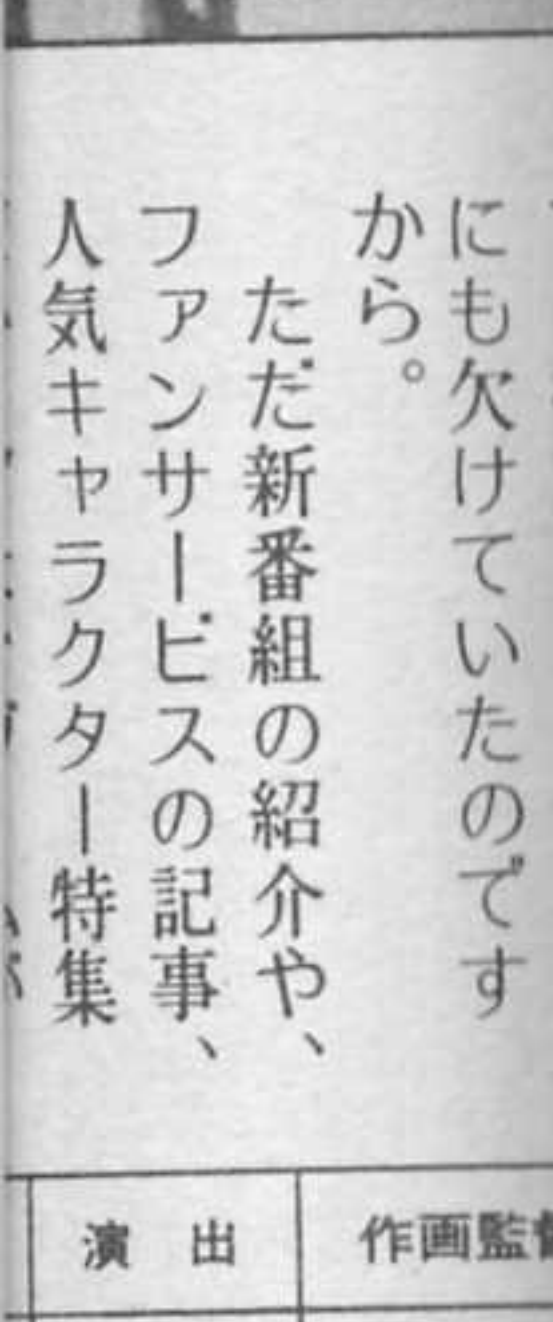 にも欠けていたのです
から。
ただ新番組の紹介や、
ファンサービスの記事、
人気キャラクター特集
演出
作画監督